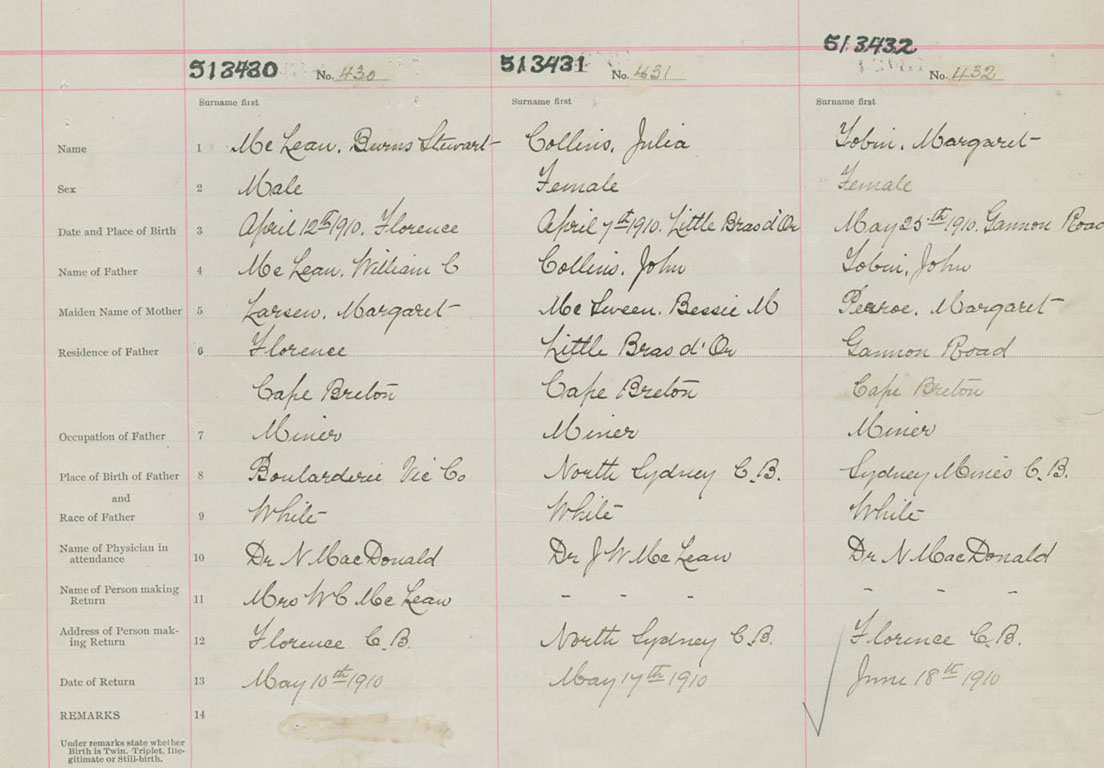 513430 No. 430 513431 No. 431 513432 No. 432
Surname first Surname first Surname first
Name 1 McLean, Burns Stewart Collins, Julia Tobin, Margaret
Sex 2 Male Female Female
Date and Place of Birth 3 April 12th 1910, Florence April 7th 1910, Little Bras d'Or May 25th 1910, Gannon Road
Name of Father 4 McLean, William C Collins, John Tobin, John
Maiden Name of Mother 5 Larsen, Margaret McSween, Bessie M Pearoe, Margaret
Residence of Father 6 Florence Little Bras d'Or Gannon Road
Cape Breton Cape Breton Cape Breton
Occupation of Father 7 Miner Miner Miner
Place of Birth of Father 8 Boularderie Vic Co North Sydney C.B. Sydney Mines C.B.
and
Race of Father 9 White White White
Name of Physician in
attendance 10 Dr N MacDonald Dr J W McLean Dr N MacDonald
Name of Person making
Return 11 Mrs W C McLean - - - - - -
Address of Person mak-
ing Return 12 Florence C.B. North Sydney C.B. Florence C.B.
Date of Return 13 May 10th 1910 May 17th 1910 June 18th 1910
REMARKS 14
Under remarks state whether
Birth is Twin, Triplet, Ille-
gitimate or Still-birth.